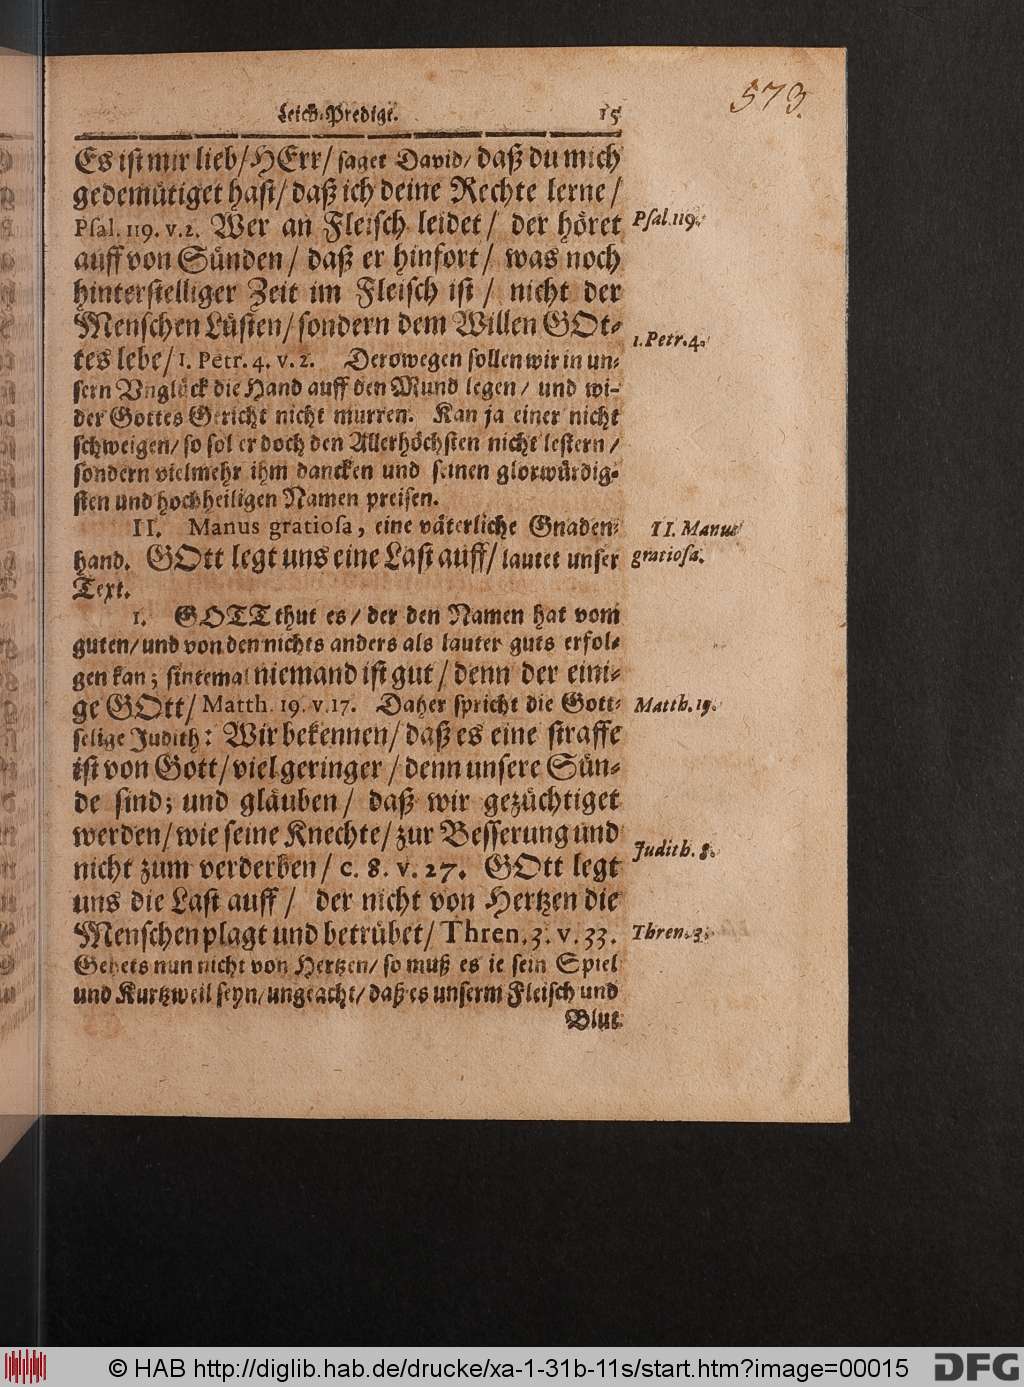 573.
Leich-Predigt. 15
Es ist mir lieb/ HErr/ saget David/ daß du mich
gedemuͤtiget hast/ daß ich deine Rechte lerne/
Psal. 119. v. 2. Wer an Fleisch leidet/ der hoͤret
auff von Suͤnden/ daß er hinfort/ was noch
hinterstelliger Zeit im Fleisch ist/ nicht der
Menschen Luͤsten/ sondern dem Willen GOt-
tes lebe/ 1. Petr. 4. v. 2. Derowegen sollen wir in un-
sern Vngluͤck die Hand auff den Mund legen/ und wi-
der Gottes Gericht nicht murren. Kan ja einer nicht
schweigen/ so sol er doch den Allerhoͤchsten nicht lestern/
sondern vielmehr ihm dancken und seinen glorwuͤrdig-
sten und hochheiligen Namen preisen.
II. Manus gratiosa, eine vaͤterliche Gnaden-
hand. GOtt legt uns eine Last auff/ lautet unser
Text.
1. GOTT thut es/ der den Namen hat vom
guten/ und von den nichts anders als lauter guts erfol-
gen kan; sintemal niemand ist gut/ denn der eini-
ge GOtt/ Matth. 19. v. 17. Daher spricht die Gott-
selige Judith: Wir bekennen/ daß es eine straffe
ist von Gott/ viel geringer/ denn unsere Suͤn-
de sind; und glaͤuben/ daß wir gezuͤchtiget
werden/ wie seine Knechte/ zur Besserung und
nicht zum verderben/ c. 8. v. 27. GOtt legt
uns die Last auff/ der nicht von Hertzen die
Menschen plagt und betruͤbet/ Thren. 3. v. 33.
Gehets nun nicht von Hertzen/ so muß es ie sein Spiel
und Kurtzweil seyn/ ungeacht/ daß es unserm Fleisch und
Blut
Psal. 119.
1. Petr. 4.
II. Manus
gratiosa.
Matth. 19.
Judith. 8.
Thren. 3.
© HAB http://diglib.hab.de/drucke/xa-1-31b-11s/start.htm?image=00015
DFG